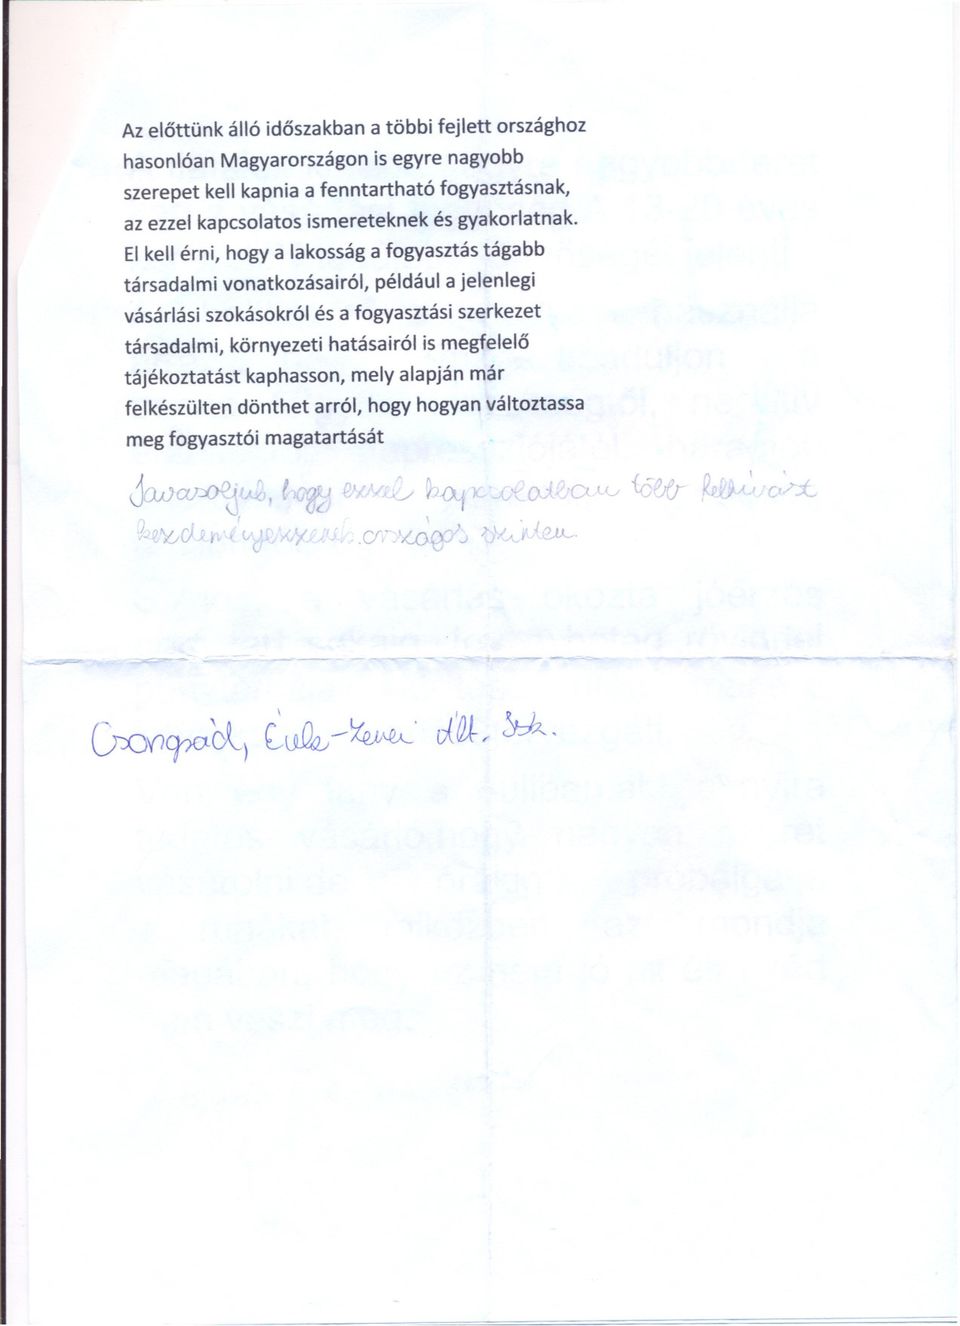 Az előttünk álló időszakban a többi fejlett országhoz
hasonlóan Magyarországon is egyre nagyobb
szerepet kell kapnia a fenntartható fogyasztásnak,
az ezzel kapcsolatos ismereteknek és gyakorlatnak.
El kell érni, hogy a lakosság a fogyasztás tágabb
társadalmi vonatkozásairól, például a jelenlegi
vásárlási szokásokról és a fogyasztási szerkezet
társadalmi, környezeti hatásairól is megfelelő
tájékoztatást kaphasson, mely alapján már
felkészülten dönthet arról, hogy hogyan változtassa
meg fogyasztói magatartását
Javasoljuk, hogy ezzel kapcsolatban több felhívást
kezdeményezzenek országos szinten.
Csongrád, -Zenei Ált. Isk.